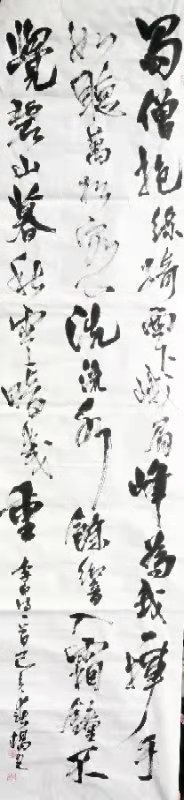 蜀僧抱綠綺西下峨眉峰為我一揮手
如聽萬松客心洗流水餘響入霜鐘不
覺碧山暮秋雲暗幾重 李白詩一首己亥